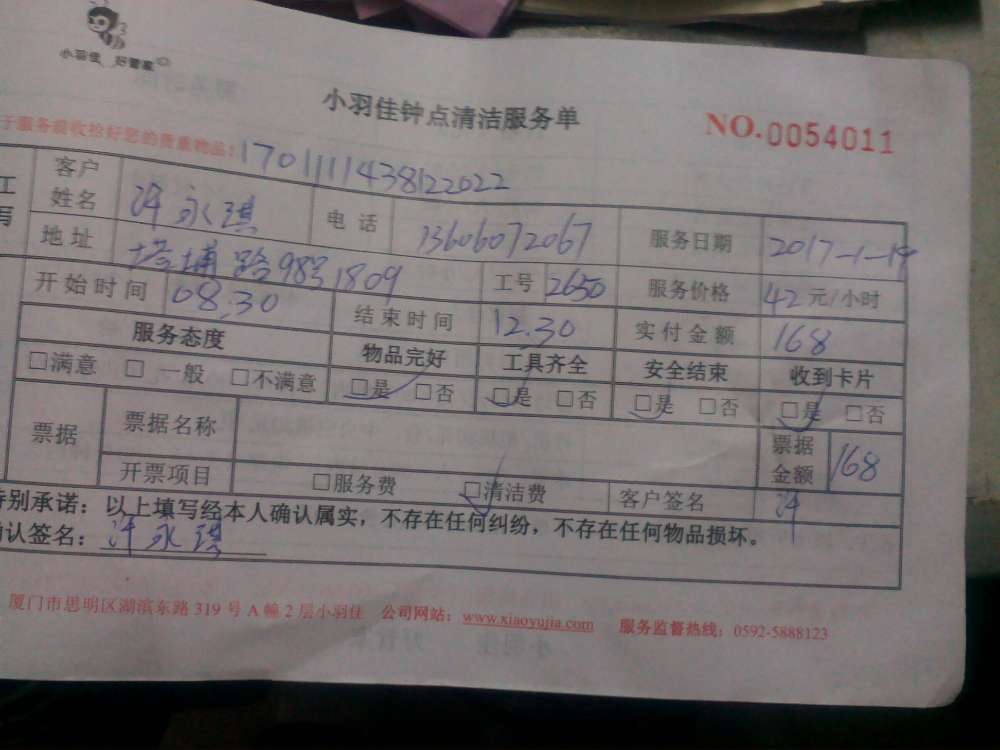 小羽佳 好管家
小羽佳钟点清洁服务单
NO.0054011
于服务前收拾好您的贵重物品:
1701111438122022
客户姓名 许永琪 电话 13606072067 服务日期 2017-1-19
地址 塔埔路98号1809 工号 2650 服务价格 42元/小时
开始时间 08:30 结束时间 12.30 实付金额 168
服务态度 物品完好 工具齐全 安全结束 收到卡片
□满意 □一般 □不满意 □是 □否 □是 □否 □是 □否 □是 □否
票据 票据名称 票据金额 168
开票项目 □服务费 □清洁费 客户签名 许
特别承诺:以上填写经本人确认属实,不存在任何纠纷,不存在任何物品损坏。
确认签名:许永琪
厦门市思明区湖滨东路319号A幢2层小羽佳 公司网站:www.xiaoyujia.com 服务监督热线:0592-5888123